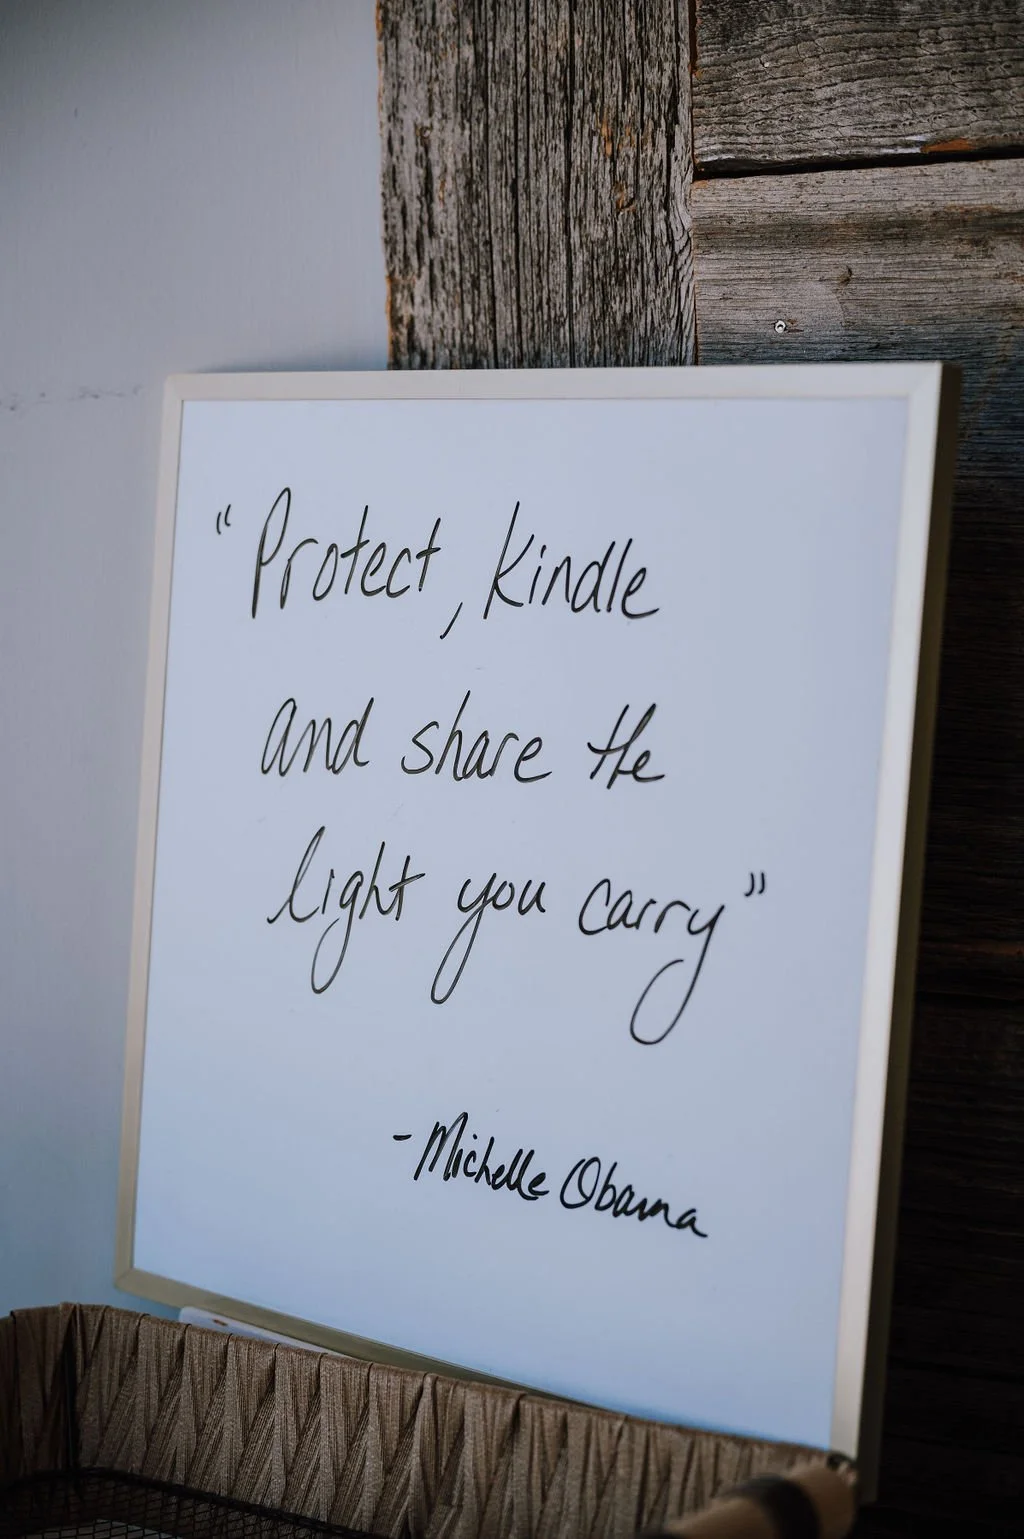 “Protect, kindle
and share the
light you carry”
- Michelle Obama